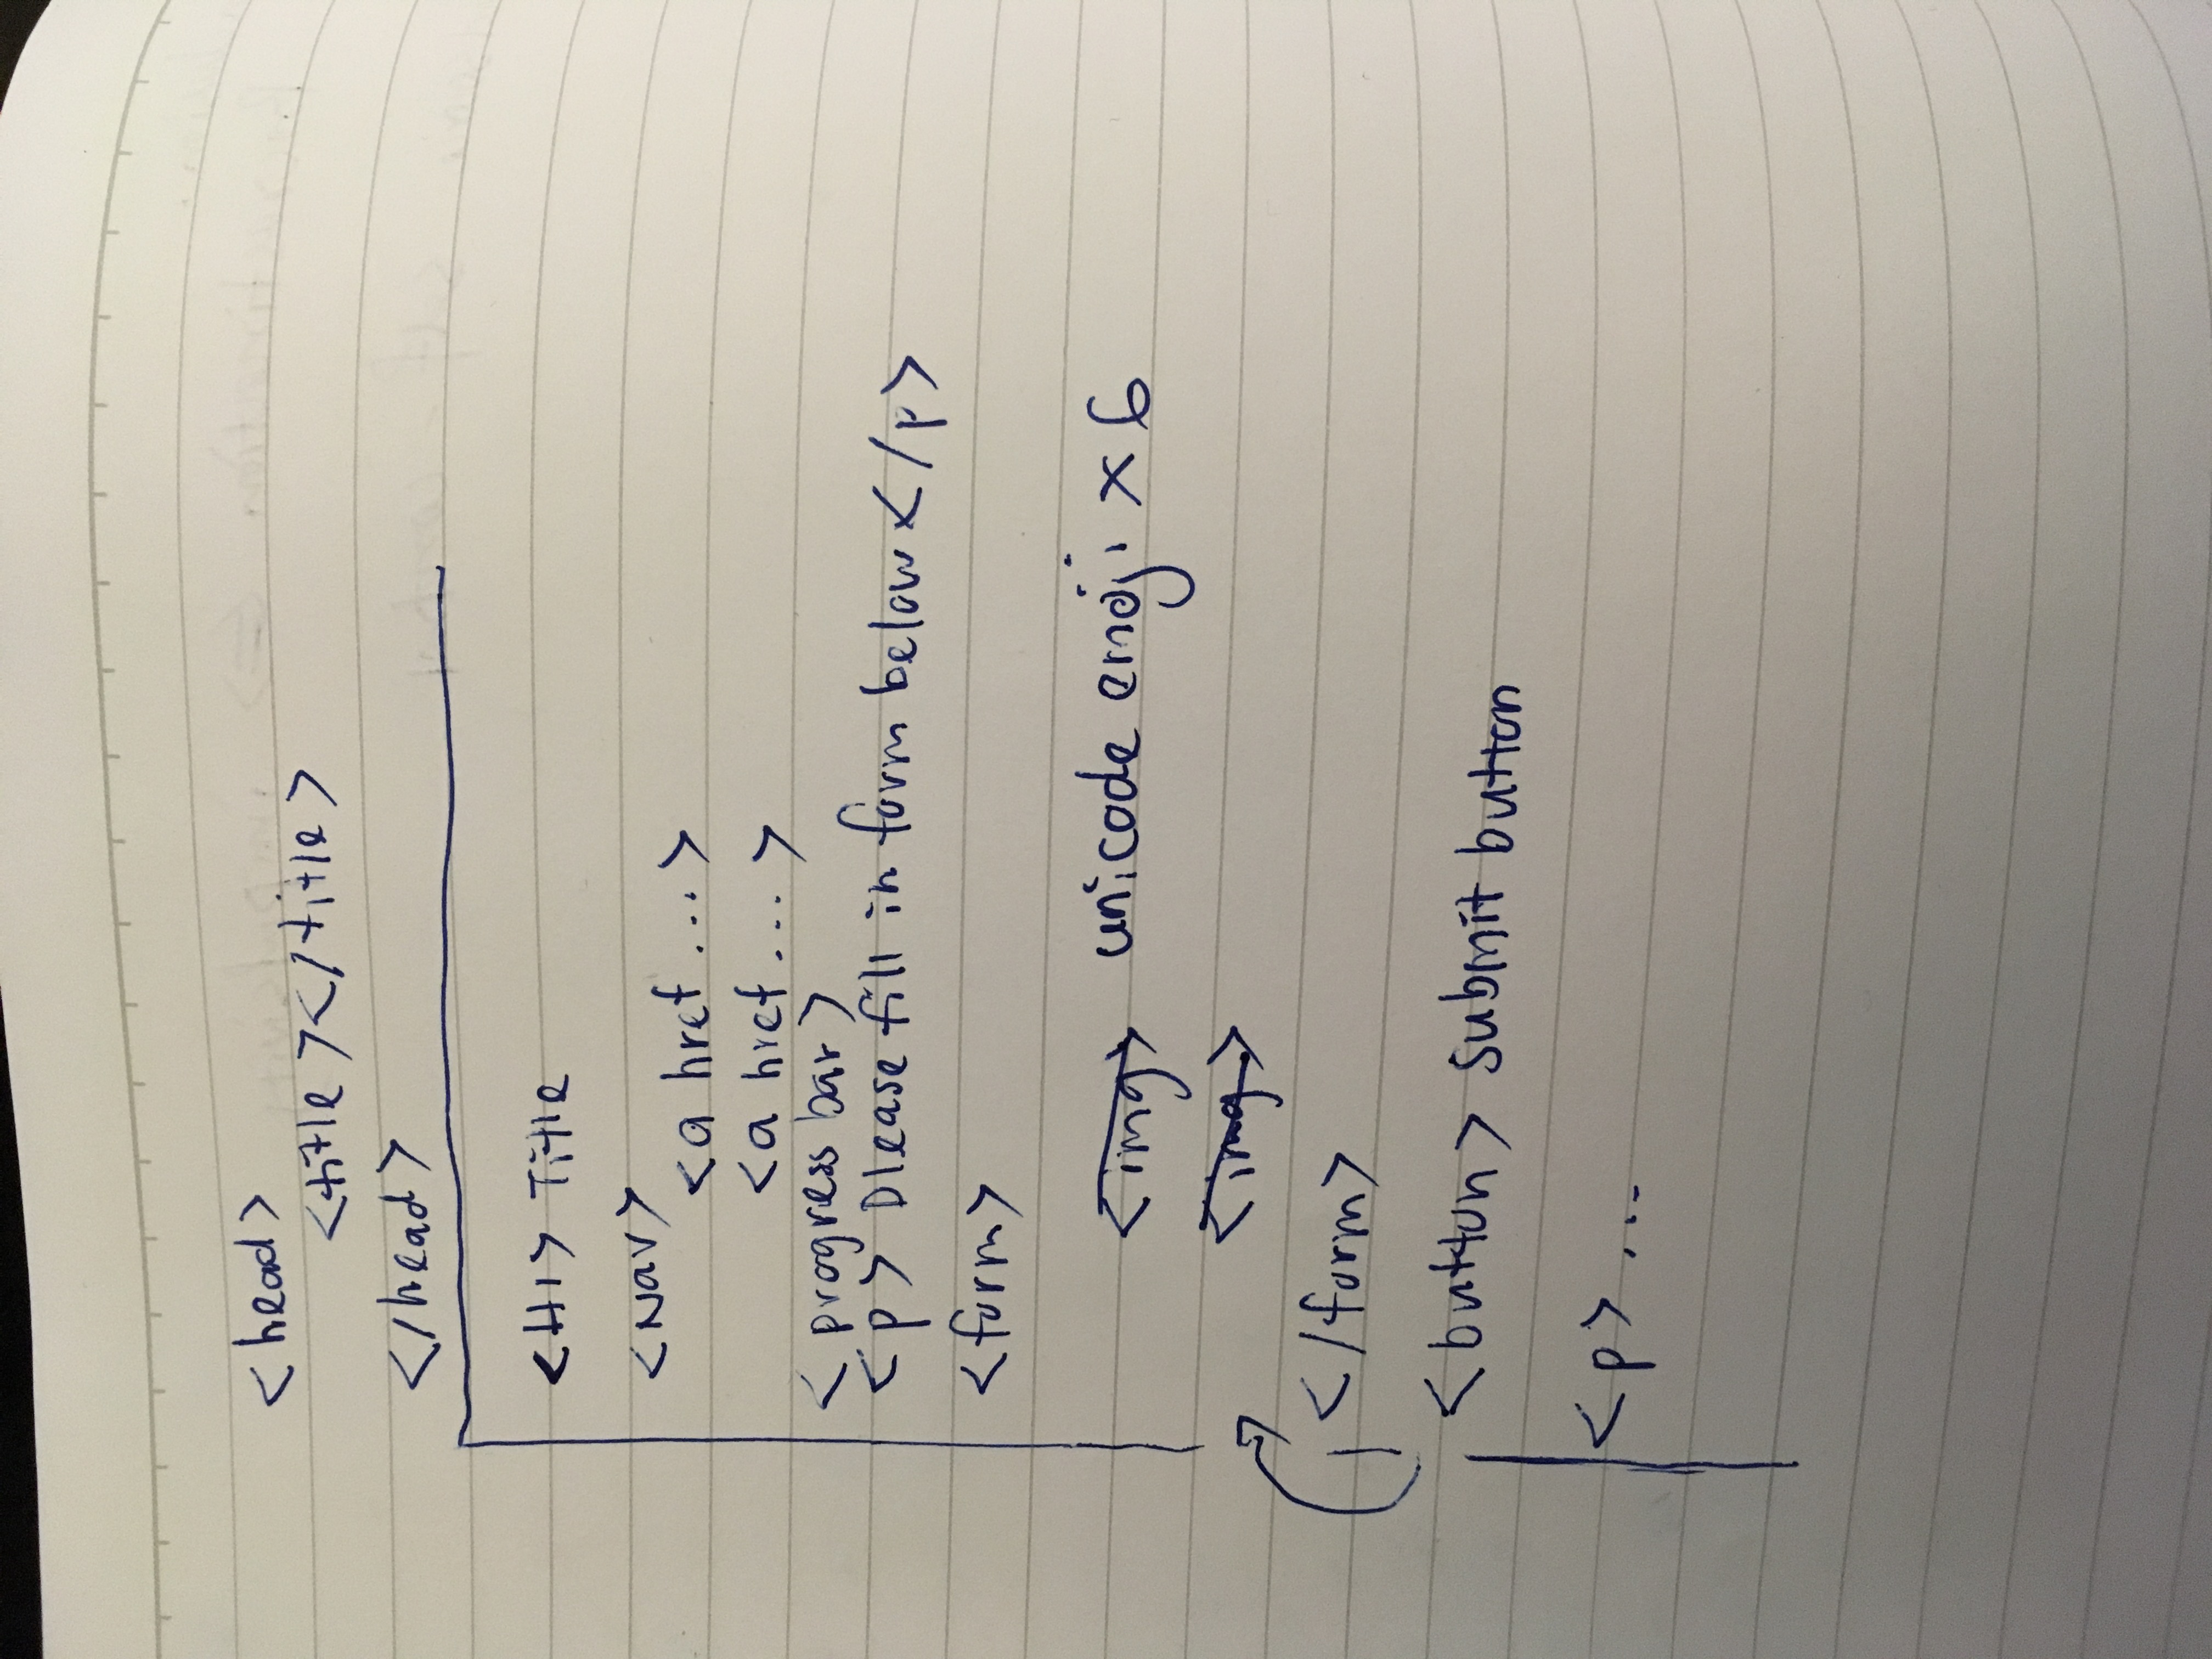 <head>
<title></title>
</head>
<H1> Title
<Nav>
<a href ... >
<a href ... >
< progress bar >
<p> Please fill in form below </p>
<form>
<img> unicode emoji x 6
<img>
</form>
<button> submit button
<p> ...